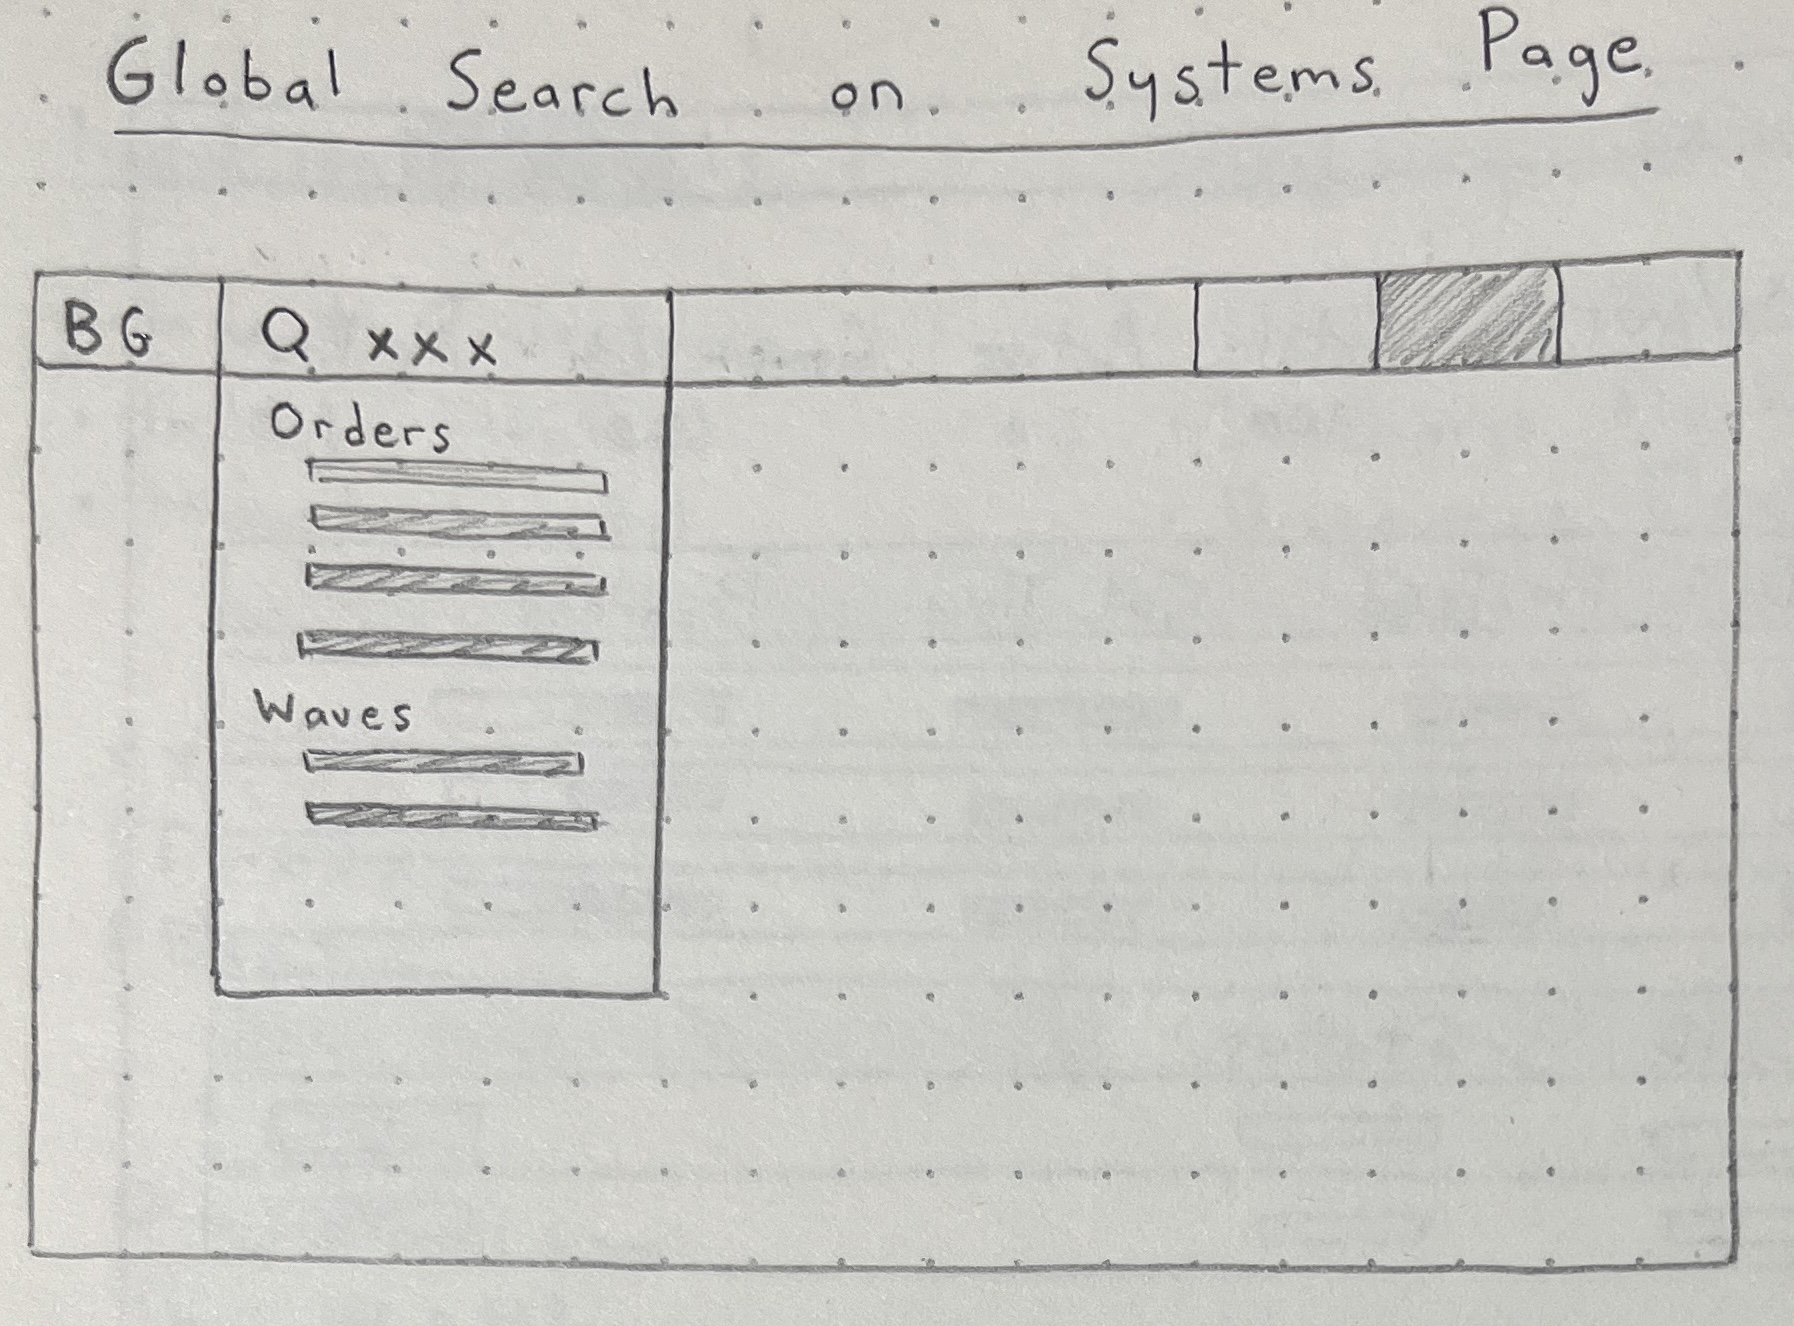 Global Search on Systems Page
BG
xxx
Orders
Waves